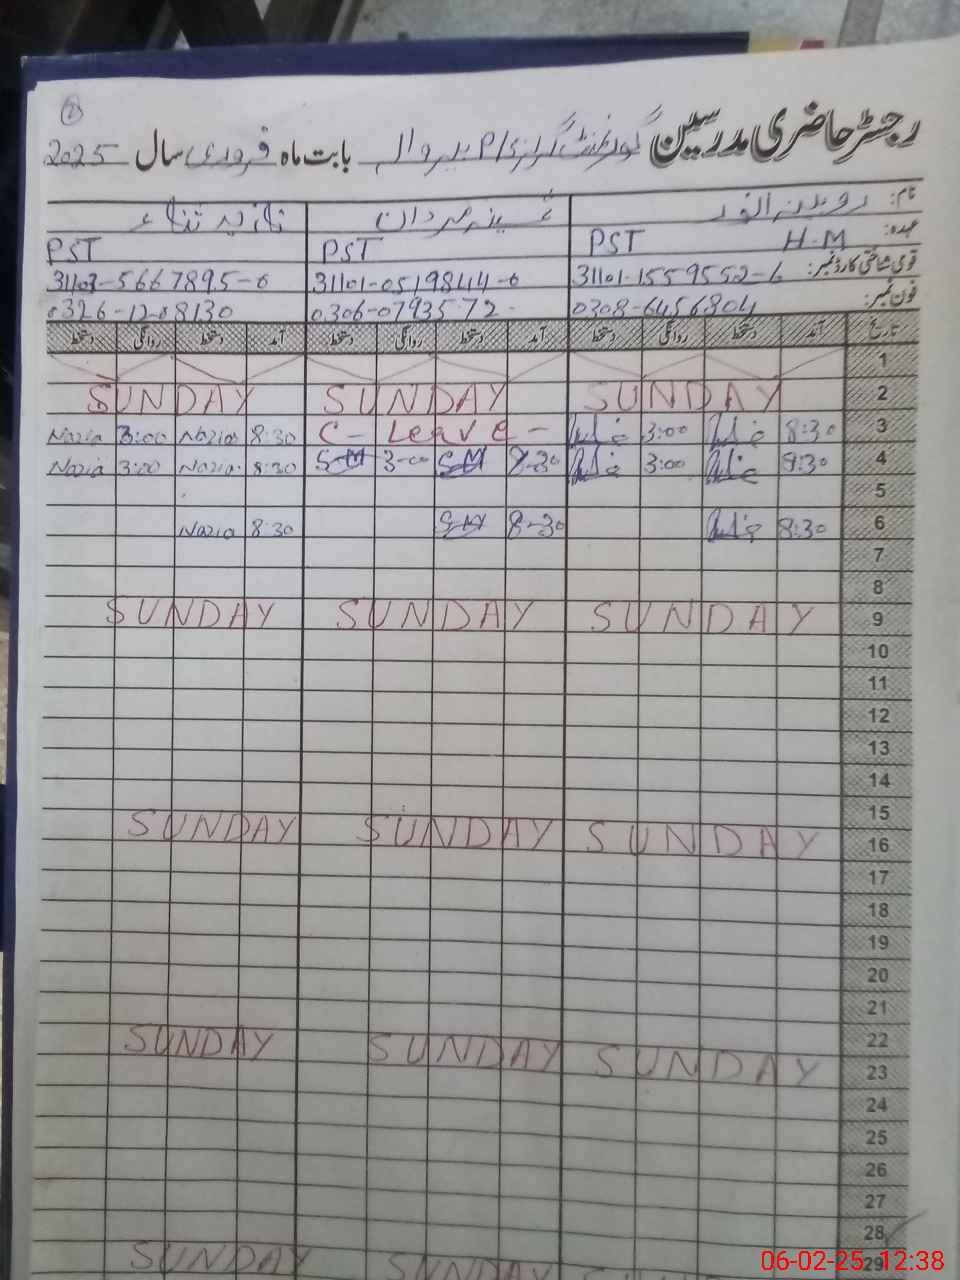 2
رجسٹر حاضری مدرسین گورنمنٹ گرلز P/S بابت ماہ فروری سال 2025
نام: روبینہ انور نازیہ ثناء
عہدہ: H.M PST PST PST
قومی شناختی کارڈ نمبر: 31101-1559552-6 31101-0519844-0 31103-5667895-0
فون نمبر: 0308-6456804 0306-0793572 0326-1208130
تاریخ آمد دستخط روانگی دستخط آمد دستخط روانگی دستخط آمد دستخط روانگی دستخط
1
2 SUNDAY SUNDAY SUNDAY
3 8:30 3:00 C- Leave - 8:30 Nazia 3:00 Nazia
4 8:30 3:00 8-30 SM 3-00 SM 8:30 Nazia 3:00 Nazia
5
6 8:30 8-30 SM 8:30 Nazia
7
8
9 SUNDAY SUNDAY SUNDAY
10
11
12
13
14
15
16 SUNDAY SUNDAY SUNDAY
17
18
19
20
21
22
23 SUNDAY SUNDAY SUNDAY
24
25
26
27
28
29 SUNDAY SUNDAY
06-02-25 12:38